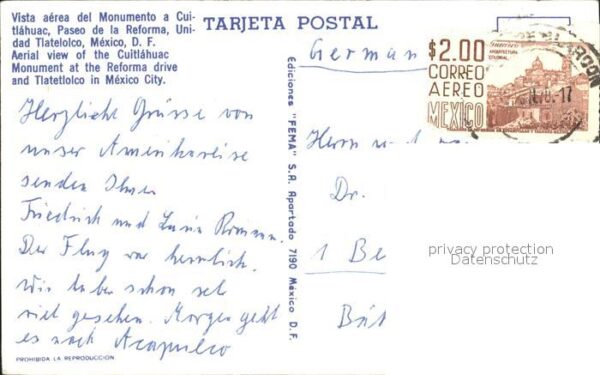 Vista aérea del Monumento a Cui-
tláhuac, Paseo de la Reforma, Uni-
dad Tlatelolco, México, D. F.
Aerial view of the Cuitláhuac
Monument at the Reforma drive
and Tlatetlolco in México City.
TARJETA POSTAL
Herzliche Grüsse von
unser Amerikareise
senden Ihnen
Friedrich und
Der Flug war herrlich.
Wir haben schon sehr
viel gesehen. Morgen geht
es nach Acapulco
PROHIBIDA LA REPRODUCCION
Ediciones "FEMA" S.A. Apartado 7190 México D.F.
Germany
Herrn und
Dr.
1 Be
$2.00
CORREO
AEREO
MEXICO
ARQUITECTURA
COLONIAL
privacy protection
Datenschutz